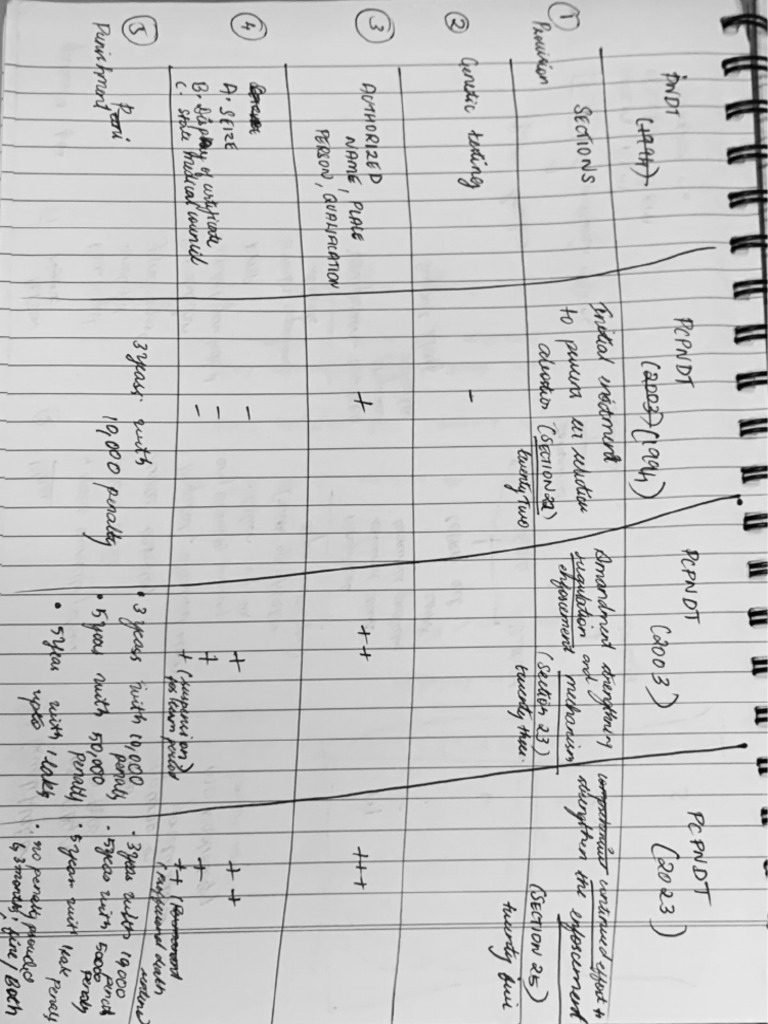 PNDT
(1994)
PCPNDT
(2003) (1994)
PCPNDT
(2003)
PCPNDT
(2023)
SECTIONS
① Provision
Initial enactment
to prevent sex selection
abortion (SECTION 22)
twenty two
Amendment strengthening
regulation and
enforcement mechanism
(Section 23)
twenty three.
continued effort to
strengthen the enforcement
(SECTION 25)
twenty five
② Genetic testing
-
③ AUTHORIZED
NAME, PLACE
PERSON, QUALIFICATION
+
++
+++
④
A. SEIZE
B. Display of certificate
C. State medical council
-
-
-
+
+
+ (suspension)
for team period
++
+
++ (Permanent
professional death
⑤ Punishment
3 years with
10,000 penalty
• 3 years with 10,000
penalty
• 5 years with 50,000
penalty
• 5 year with 1 lakh
upto
• 3 year with 10,000
• 5 year with 5000
penalty
• 5 year with 1 lakh penalty
• no penalty provided
3 months, fine / Both